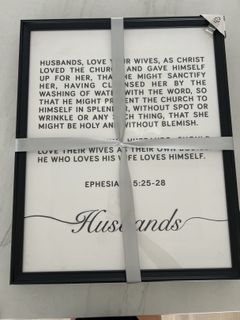 HUSBANDS, LOVE YOUR WIVES, AS CHRIST
LOVED THE CHURCH AND GAVE HIMSELF
UP FOR HER, THAT HE MIGHT SANCTIFY
HER, HAVING CLEANSED HER BY THE
WASHING OF WATER WITH THE WORD, SO
THAT HE MIGHT PRESENT THE CHURCH TO
HIMSELF IN SPLENDOR, WITHOUT SPOT OR
WRINKLE OR ANY SUCH THING, THAT SHE
MIGHT BE HOLY AND WITHOUT BLEMISH.
HUSBANDS SHOULD
LOVE THEIR WIVES AS THEIR OWN
HE WHO LOVES HIS WIFE LOVES HIMSELF.
EPHESIANS 5:25-28
Husbands